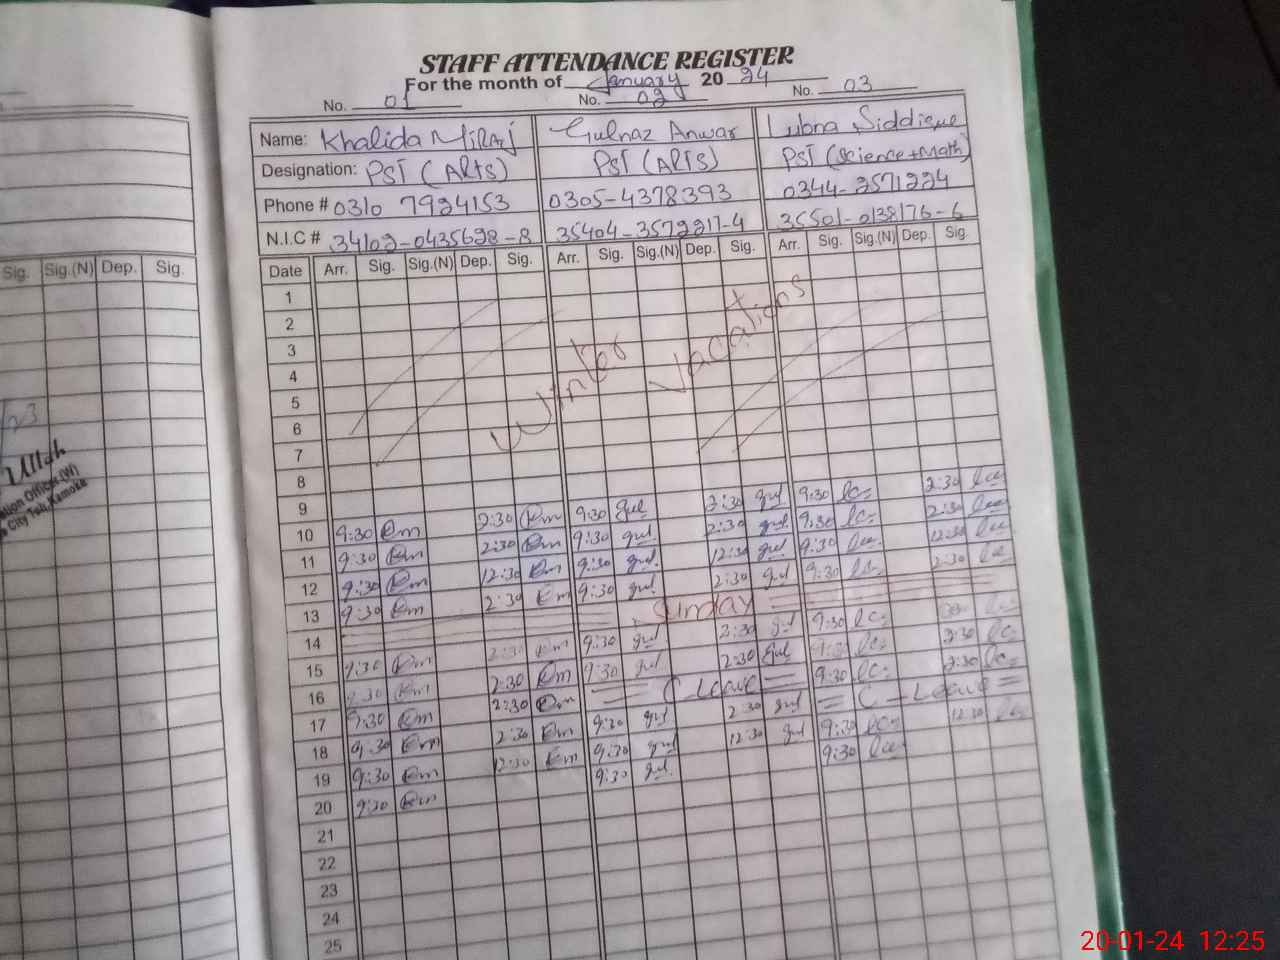 STAFF ATTENDANCE REGISTER
For the month of January 20 24
No. 01 No. 02 No. 03
Name: Khalida Miraj Gulnaz Anwar Lubna Siddique
Designation: PST (Arts) PST (Arts) PST (Science+Math)
Phone # 0310 7924153 0305-4378393 0344-2571224
N.I.C # 34102-0435628-8 35404-3572217-4 35501-0138176-6
Sig. Sig.(N) Dep. Sig.
Date Arr. Sig. Sig.(N) Dep. Sig. Arr. Sig. Sig.(N) Dep. Sig. Arr. Sig. Sig.(N) Dep. Sig.
1
2
3
4
5
6
7
Winter Vacations
8
9
10 9:30 Km 2:30 Km 9:30 gul 2:30 gul 9:30 2:30
11 9:30 Km 2:30 Km 9:30 gul 2:30 gul 9:30 2:30
12 9:30 Km 12:30 Km 9:30 gul 12:30 gul 9:30 12:30
13 9:30 Km 2:30 Km 9:30 gul 2:30 gul 9:30 2:30
14 Sunday
15 9:30 Km 2:30 Km 9:30 gul 2:30 gul 9:30
16 9:30 Km 2:30 Km 9:30 gul 2:30 gul 9:30 2:30
17 9:30 Km 2:30 Km C Leave 9:30 2:30
18 9:30 Km 2:30 Km 9:30 gul 2:30 gul C-Leave
19 9:30 Km 12:30 Km 9:30 gul 12:30 gul 9:30 12:30
20 9:30 Km 9:30 gul 9:30
21
22
23
24
25
Ullah
City Teh. Kamoke
20-01-24 12:25